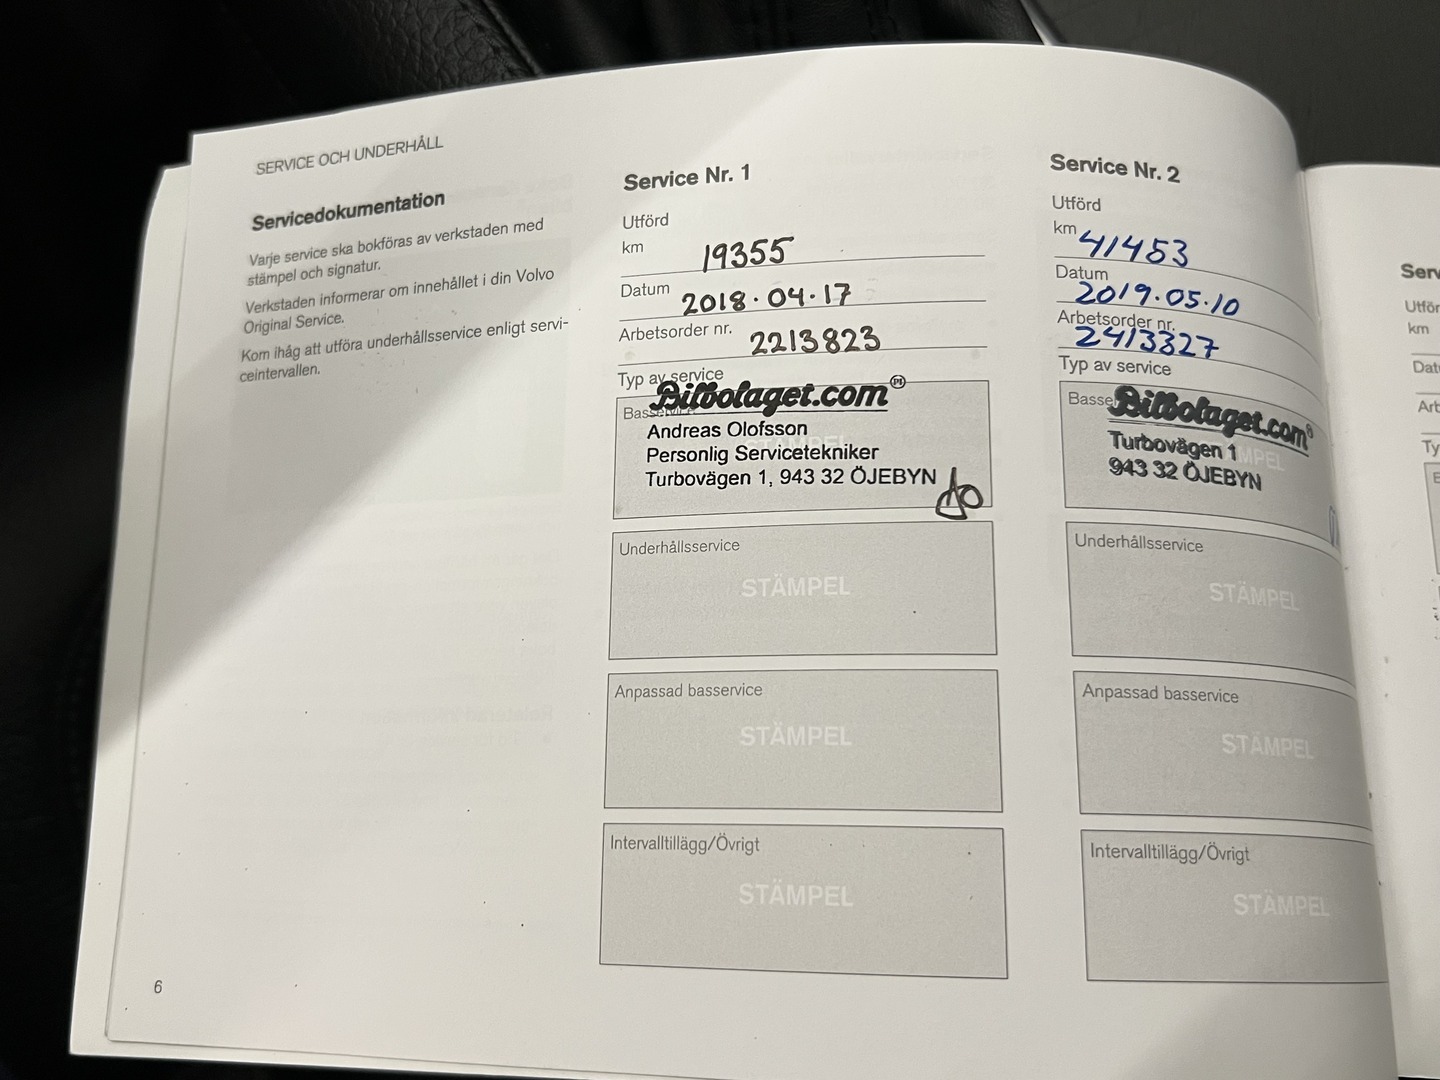 SERVICE OCH UNDERHÅLL
Servicedokumentation
Varje service ska bokföras av verkstaden med
stämpel och signatur.
Verkstaden informerar om innehållet i din Volvo
Original Service.
Kom ihåg att utföra underhållsservice enligt servi-
ceintervallen.
Service Nr. 1
Utförd
km 19355
Datum 2018.04.17
Arbetsorder nr. 2213823
Typ av service
Basservice
Bilbolaget.com
Andreas Olofsson
Personlig Servicetekniker
Turbovägen 1, 943 32 ÖJEBYN
Underhållsservice
STÄMPEL
Anpassad basservice
STÄMPEL
Intervalltillägg/Övrigt
STÄMPEL
Service Nr. 2
Utförd
km 41453
Datum
2019.05.10
Arbetsorder nr.
2413327
Typ av service
Bilbolaget.com
Turbovägen 1
943 32 ÖJEBYN
Underhållsservice
STÄMPEL
Anpassad basservice
STÄMPEL
Intervalltillägg/Övrigt
STÄMPEL
km
6